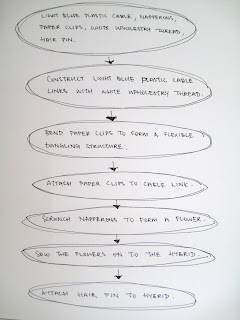 LIGHT BLUE PLASTIC CABLE, NAPPERONS,
PAPER CLIPS, WHITE UPHOLSTRY THREAD,
HAIR PIN.
CONSTRUCT LIGHT BLUE PLASTIC CABLE
LINKS WITH WHITE UPHOLSTRY THREAD.
BEND PAPER CLIPS TO FORM A FLEXIBLE
DANGLING STRUCTURE.
ATTACH PAPER CLIPS TO CABLE LINK.
SCRUNCH NAPPERONS TO FORM A FLOWER.
SEW THE FLOWERS ON TO THE HYBRID.
ATTACH HAIR PIN TO HYBRID.